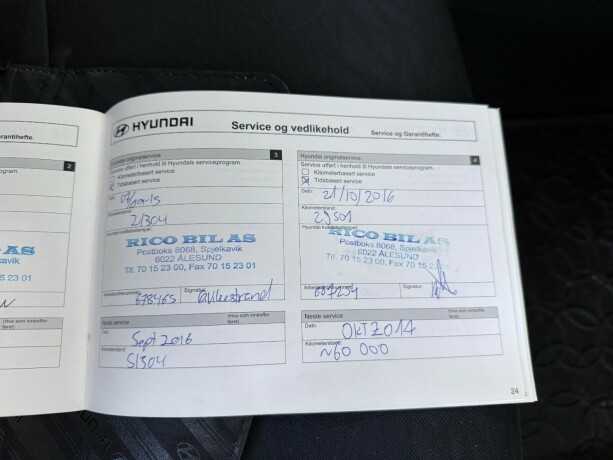 HYUNDAI
Service og vedlikehold
Service og Garantihefte.
arantihefte.
2
ogram.
AS
kavik
15 23 01
(Hva som inntreffer
først)
Hyundai originalservice 3
Service utført i henhold til Hyundais serviceprogram.
Kilometerbasert service
Tidsbasert service
Dato:
Kilometerstand:
21304
Hyundai kvalitetsstempel:
RICO BIL AS
Postboks 8068, Spjelkavik
6022 ÅLESUND
Tlf. 70 15 23 00, Fax 70 15 23 01
Arbeidsordrenummer: 678465
Signatur:
Neste service
(Hva som inntreffer
først)
Dato:
Sept 2016
Kilometerstand:
51304
Hyundai originalservice 4
Service utført i henhold til Hyundais serviceprogram.
Kilometerbasert service
Tidsbasert service
Dato: 21/10/2016
Kilometerstand:
29501
Hyundai kvalitetsstempel:
RICO BIL AS
Postboks 8068, Spjelkavik
6022 ÅLESUND
Tlf. 70 15 23 00, Fax 70 15 23 01
Signatur:
Neste service
(Hva som inntreffer
først)
Dato:
OKT 2017
Kilometerstand:
~60 000
24